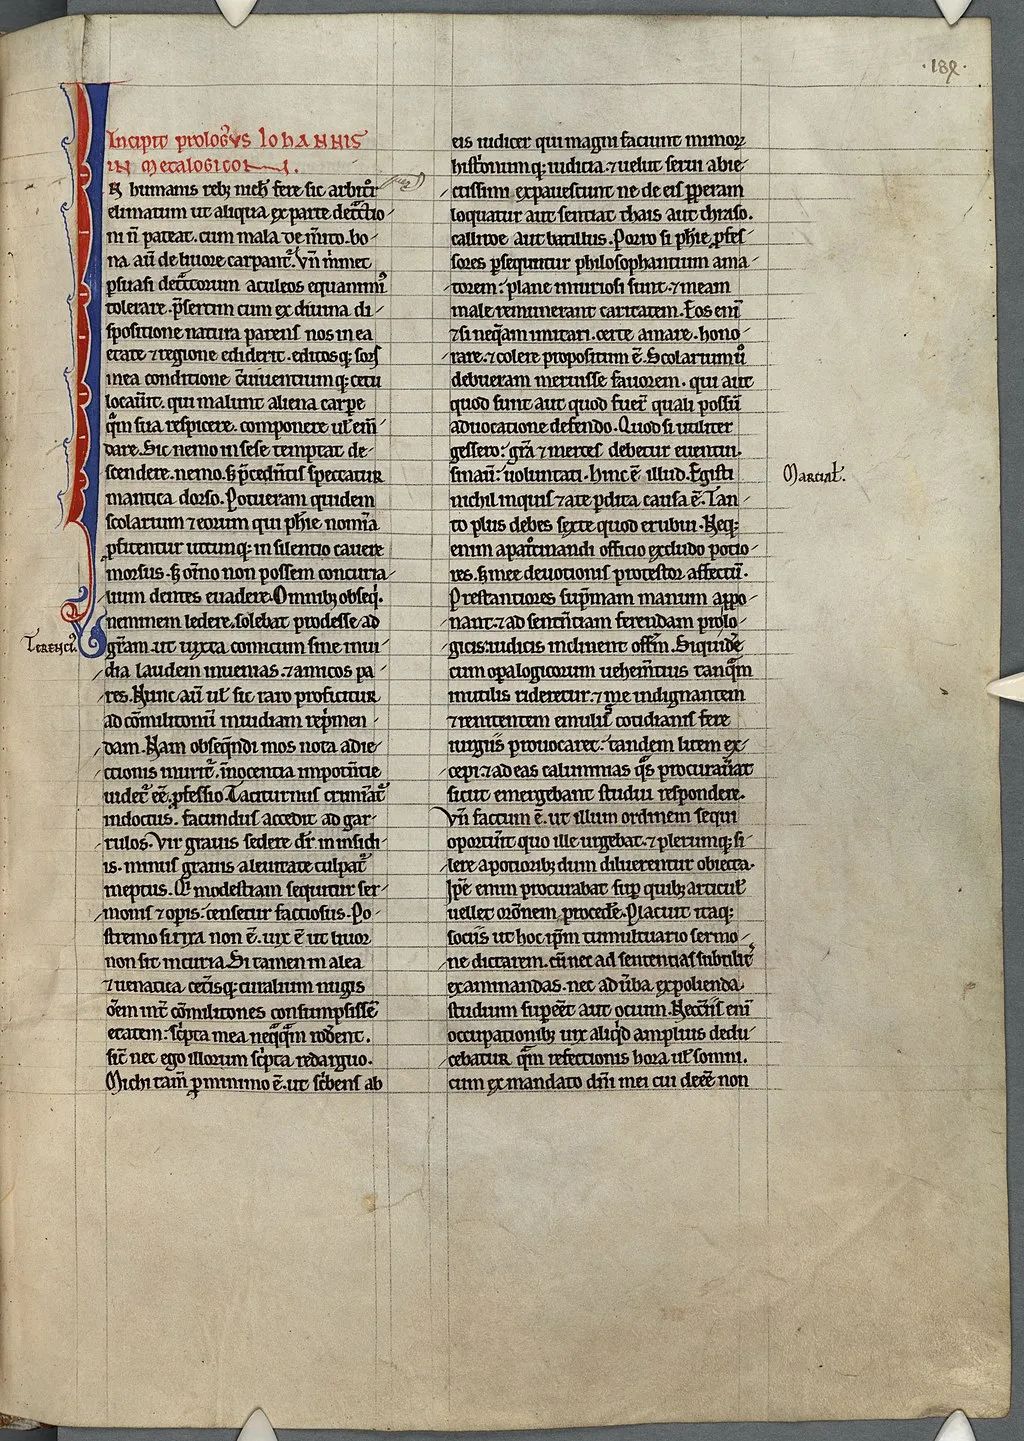 ·189·
Incipit prologus IOHANNIS
IN Metalogicon.
IN humanis reb; nich' fere sic arbitror
elimatum ut aliqua ex parte detractio-
ni n̄ pateat. cum mala de m̄ito. bo-
na aū de liuore carpant̄. Vn̄ inmet
ꝑsuasi detctorum aculeos equanimiꝰ
tolerare. p̄sertim cum ex diuina di-
spositione natura parens nos in ea
etate ⁊ regione ediderit. editosq; sors
in ea conditione c̄uiuentiumq; cetu
locauit. qui malunt aliena carpe
qm̄ sua respicere. componere ul' em̄
dare. Sic nemo in sese temptat de-
scendere. nemo. s; p̄cedn̄tis spectatur
mantica dorso. Potueram quidem
scolarum ⁊ eorum qui phīe nomīa
ꝓfitentur utcunq; in silentio cauere
morsus. s; oīno non possem concuria-
lium dentes euadere. Omnib; obseq̇.
neminem ledere. solebat prodesse ad
Terenciꝰ.
gr̄am. ut iuxta comicum sine inui-
dia laudem inuenias. ⁊ amicos pa-
res. Nunc aū ul' sic raro proficitur
ad cōmilitonū inuidiam rep̄men-
dam. Nam obseq̄ndi mos nota adie-
ctionis inurit̄. īnocentia impotn̄tie
uidet̄ eē. ꝓfessio. Taciturnus crimiat̄
indoctus. facundus accedit ad gar-
rulos. Vir grauis sedere dr̄ in insidi-
is. minus grauis a leuitate culpat̄
ineptus. Q modestiam sequitur ser-
monis ⁊ opis: censetur factiosus. Po-
stremo si rixa non ē. uix ē ut liuor
non sit in curia. Si tamen in alea
⁊ uenatica cet̄isq; curialium nugis
ōem int̄ cōmilitones consumpsissē
etatem: sc̄pta mea neq̄q̄m roderent.
sic̄ nec ego illorum sc̄pta redarguo.
Michi tam̄ ꝑ minimo ē. ut sc̄bens ab
eis iudicer qui magni faciunt mimor̄
histrionumq; iudicia. ⁊ uelut serui abie-
ctissim expauescunt ne de eis ꝑperam
loquatur aut sentiat thais aut thraso.
calliroe aut batillus. Porro si phīe ꝓfes-
sores ꝑsequuntur philosophantium ama-
torem: plane iniuriosi sunt. ⁊ meam
male remunerant caritatem. Eos enī
⁊ si neq̄am imitari. certe amare. hono-
rare. ⁊ colere propositum ē. Scolarium ū
debueram meruisse fauorem. qui aut
quod sunt aut quod fuer̄ quali possū
aduocatione defendo. Quod si utiliter
gessero: gr̄a ⁊ merces debetur euentui.
sin aū: uoluntati. Hinc ē illud. Egisti
Marcial'.
nichil inquis ⁊ a te ꝑdita causa ē. Tan-
to plus debes sexte quod erubui. Neq;
enim aꝑatomandi officio excludo potio-
res. s; mee deuotionis protestor affectū.
Prestantiores sup̄mam manum appo-
nant. ⁊ ad sentn̄tiam ferendam ꝓlolo-
gicis: iudicis inclinent offm̄. Siquidē
cum opa logicorum uehem̄tius tanq̄m
inutilis rideretur. ⁊ me indignantem
⁊ renitentem emulus cotidianis fere
iurgiis prouocaret. tandem litem ex-
cepi. ⁊ ad eas calumnias q̄s procurauat
sicut emergebant studui respondere.
Vn̄ factum ē. ut illum ordinem sequi
oportuit quo ille urgebat. ⁊ plerumq; si-
lere a potiorib; dum diluerentur obiecta.
Ip̄e enim procurabat suꝑ quib; articul'
uellet orōnem procedē. Placuit itaq;
sociis ut hoc ip̄m tumultuario sermo-
ne dictarem. cū nec ad sentencias subtilit̄
examinandas. nec ad ūba expolienda
studium suꝑeēt aut otium. Necc̄riis enī
occupationib; uix aliq̇d ampluis dedu-
cebatur qm̄ refectionis hora ul' somni.
cum ex mandato dn̄i mei cui deeē non